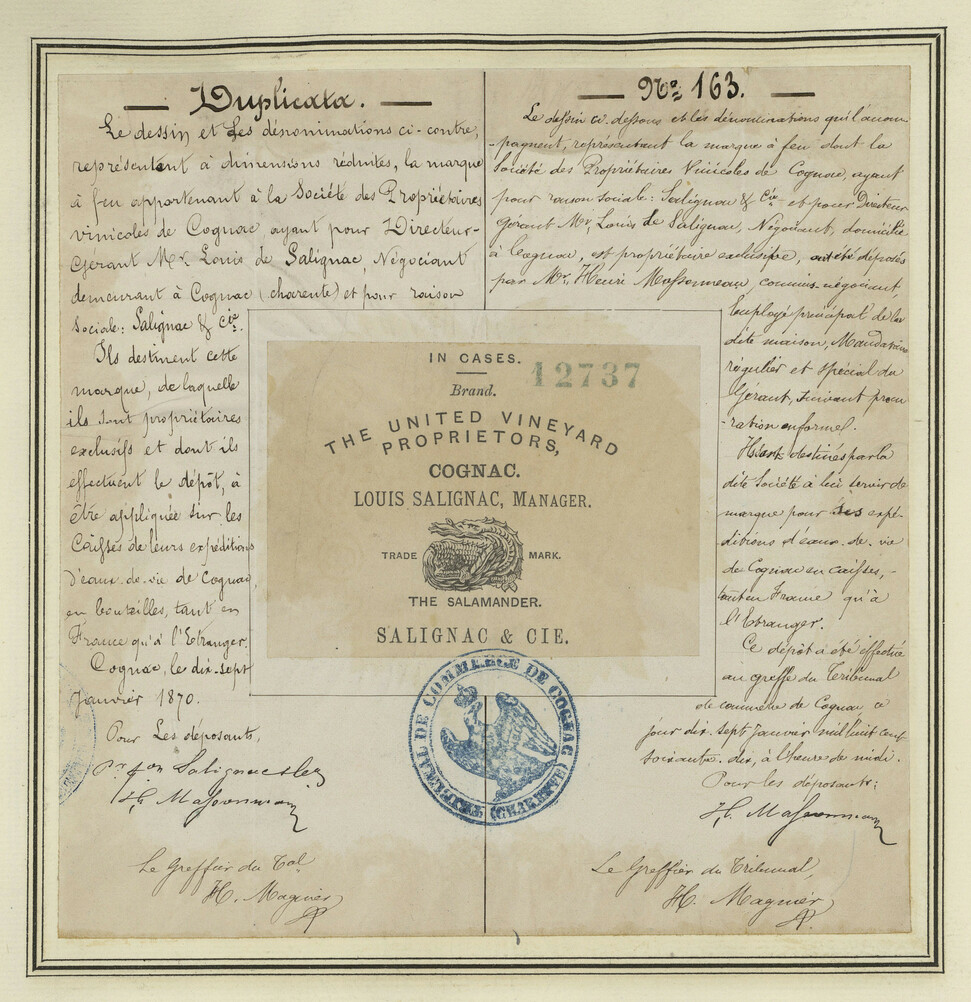 Duplicata.
Le dessin et les dénominations ci-contre,
représentent à dimensions réduites, la marque
à feu appartenant à la Société des Propriétaires
vinicoles de Cognac, ayant pour Directeur-
Gérant Mr. Louis de Salignac, Négociant
demeurant à Cognac (charente) et pour raison
Sociale: Salignac & Cie.
Ils destinent cette
marque, de laquelle
ils sont propriétaires
exclusifs et dont ils
effectuent le dépôt, à
être appliquée sur les
Caisses de leurs expéditions
d'eaux-de-vie de Cognac,
en bouteilles, tant en
France qu'à l'Etranger.
Cognac, le dix-sept
Janvier 1870.
Pour Les déposants,
Salignac
H. Massonneau
Le Greffier du Tal
H. Magnier
No 163.
Le dessin ci-dessous et les dénominations qui l'accom-
-pagnent, représentant la marque à feu dont la
Société des Propriétaires Vinicoles de Cognac, ayant
pour raison sociale: Salignac & Cie. et pour Directeur
Gérant Mr. Louis de Salignac, Négociant, domicilié
à Cognac, est propriétaire exclusive, ont été déposés
par Mr. Henri Massonneau, commis-négociant,
Employé principal de la
dite maison, Mandataire
régulier et spécial du
Gérant, suivant procu
-ration en forme.
Ils sont destinés par la
dite Société à lui servir de
marque pour ses expé-
ditions d'eaux-de-vie
de Cognac en caisses, -
tant en France qu'à
l'Etranger.
Ce dépôt a été effectué
au greffe du Tribunal
de commerce de Cognac, ce
jour dix-sept Janvier mil huit cent
soixante-dix, à l'heure de midi.
Pour les déposants:
H. Massonneau
Le Greffier du Tribunal,
H. Magnier
IN CASES.
12737
Brand.
THE UNITED VINEYARD
PROPRIETORS,
COGNAC.
LOUIS SALIGNAC, MANAGER.
TRADE MARK.
THE SALAMANDER.
SALIGNAC & CIE.
TRIBUNAL DE COMMERCE DE COGNAC (CHARENTE)